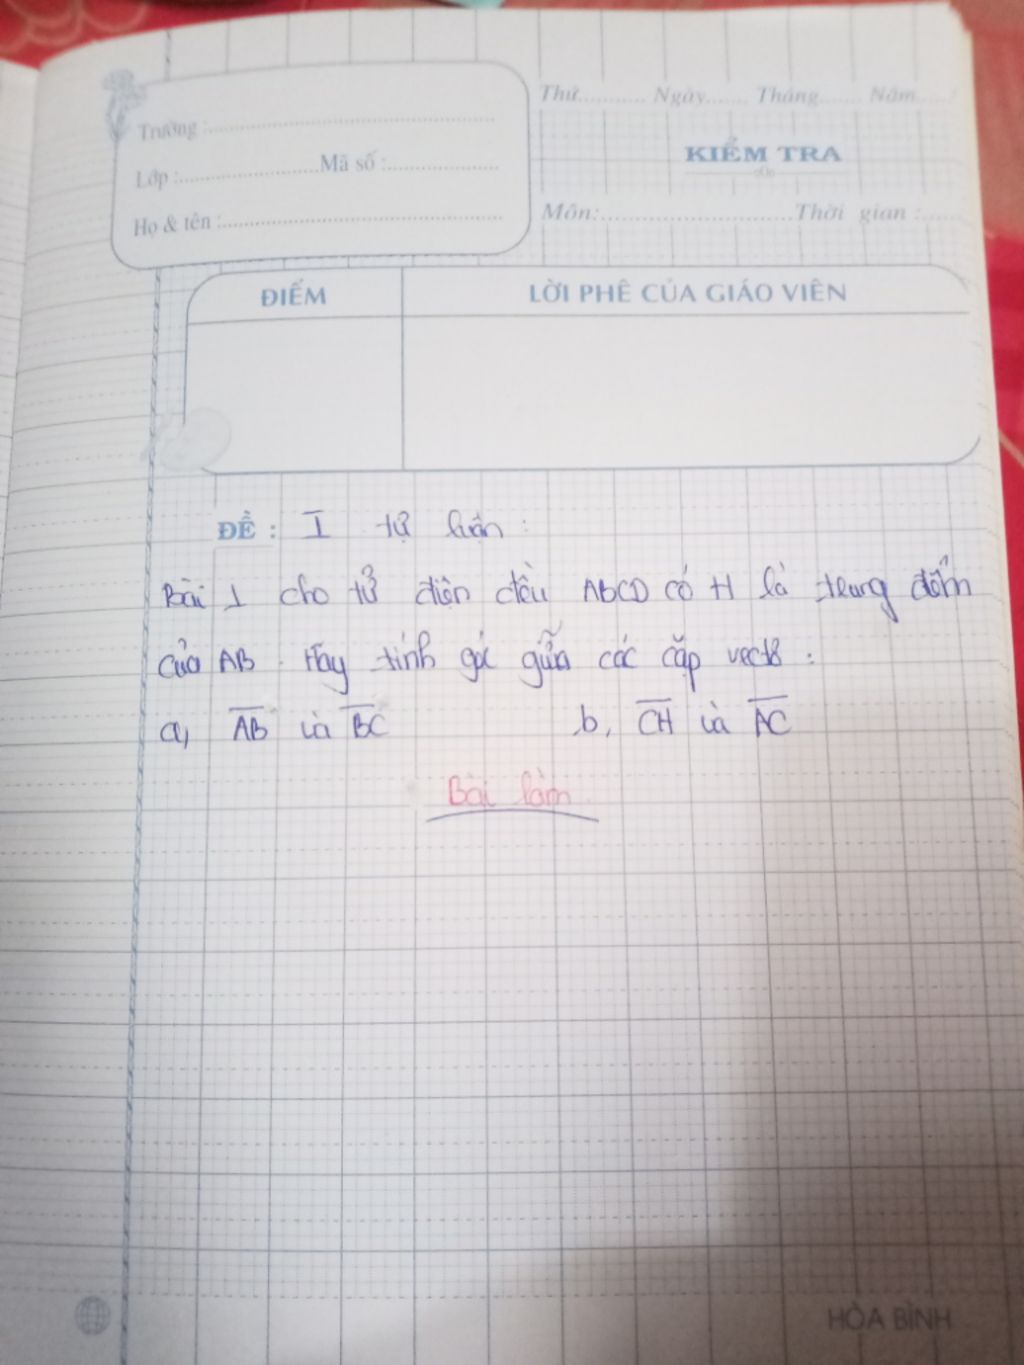 Thứ.......... Ngày....... Tháng....... Năm......
Trường :
Lớp : Mã số :
Họ & tên :
KIỂM TRA
Môn: Thời gian :
ĐIỂM LỜI PHÊ CỦA GIÁO VIÊN
ĐỀ : I tự luận :
Bài 1 cho tứ diện đều ABCD có H là trung điểm
của AB. Hãy tính góc giữa các cặp vectơ :
a, AB và BC b, CH và AC
Bài làm
HÒA BÌNH